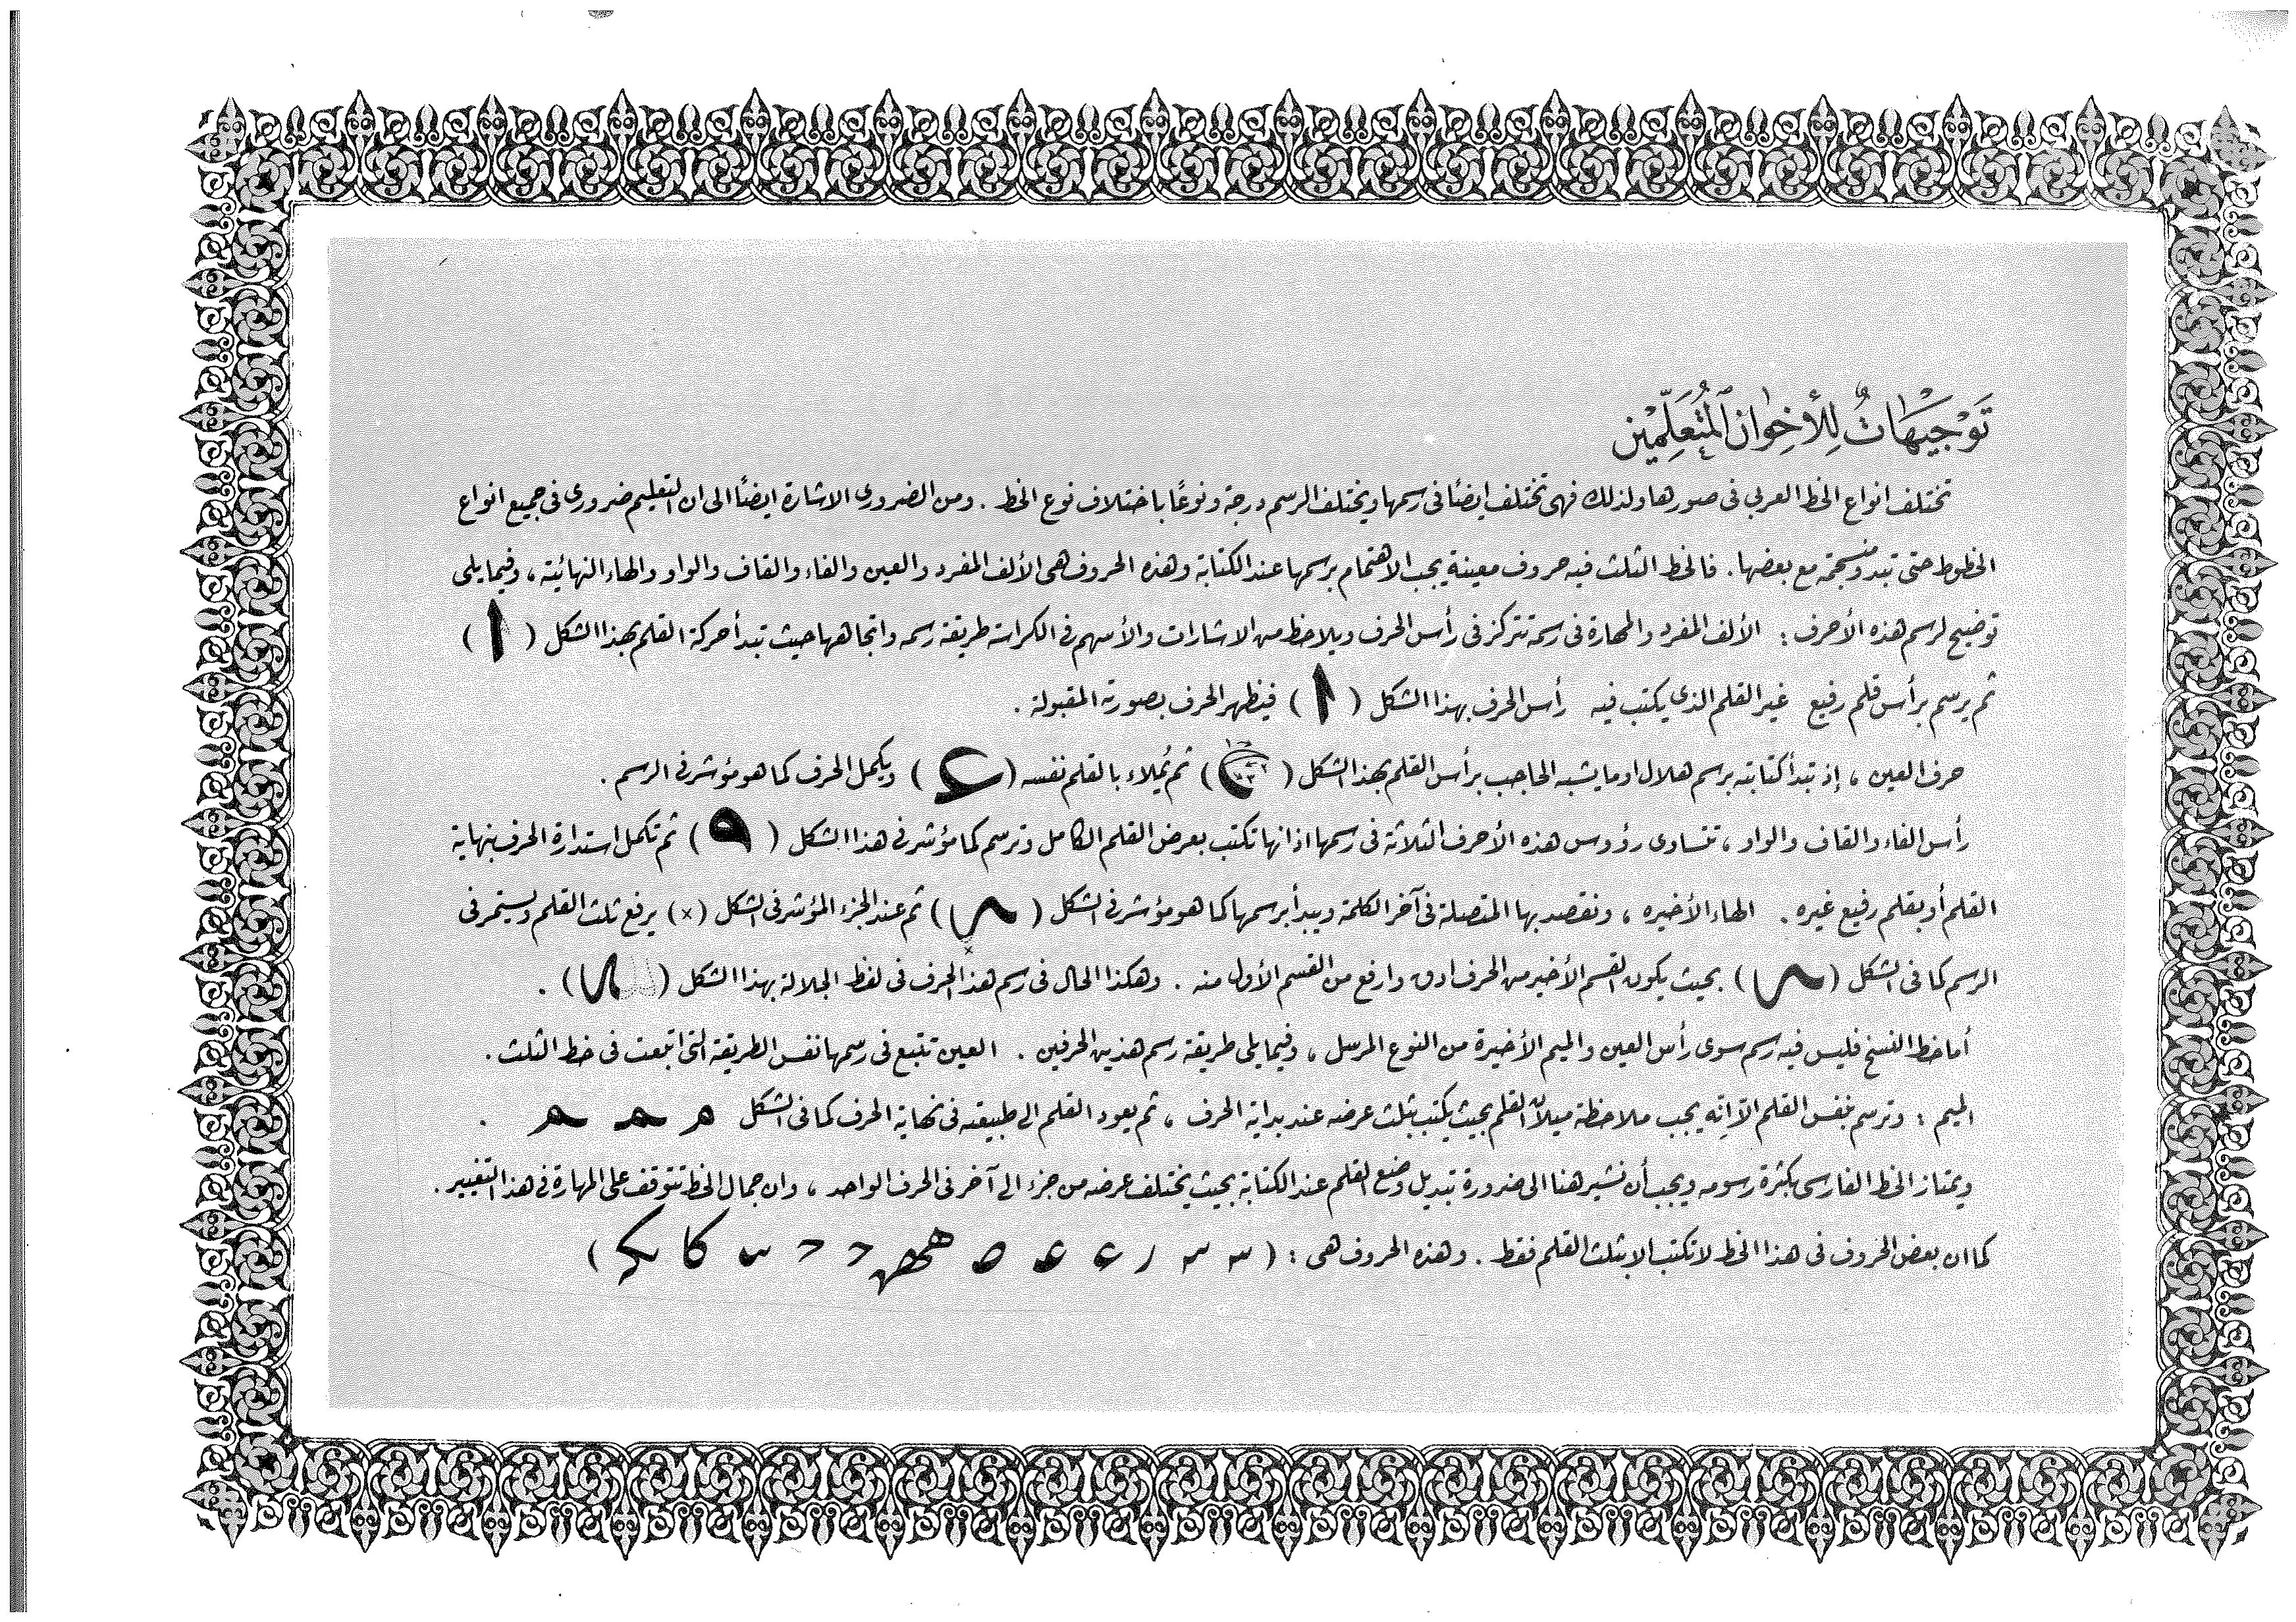 تَوْجِيهَاتٌ لِلأَخِوان المُتَعَلِّمِين
تختلف انواع الخط العربي في صورها ولذلك فهي تختلف ايضاً في رسمها ويختلف الرسم درجة ونوعًا باختلاف نوع الخط . ومن الضروري الاشارة ايضاً الى ان التعليم ضروري في جميع انواع
الخطوط حتى تبدو منسجمة مع بعضها . فالخط الثلث فيه حروف معينة يجب الاهتمام برسمها عند الكتابة وهذه الحروف هي الألف المفرد والعين والفاء والقاف والواو والهاء النهائية ، وفيما يلي
توضيح لرسم هذه الأحرف : الألف المفرد والمهارة في رسمه تتركز في رأس الحرف ويلاحظ من الاشارات والأسهم في الكراسة طريقة رسمه واتجاهها حيث تبدأ حركة القلم بهذا الشكل ( ا )
ثم يرسم برأس قلم رفيع غير القلم الذي يكتب فيه رأس الحرف بهذا الشكل ( ا ) فيظهر الحرف بصورته المقبولة .
حرف العين ، إذ تبدأ كتابته برسم هلال او ما يشبه الحاجب برأس القلم بهذا الشكل ( ) ثم يُملاء بالقلم نفسه ( ع ) ويكمل الحرف كما هو مؤشر في الرسم .
رأس الفاء والقاف والواو ، تتساوى رؤوس هذه الأحرف الثلاثة في رسمها اذ انها تكتب بعرض القلم الكامل وترسم كما مؤشر في هذا الشكل ( ) ثم تكمل استدارة الحرف بنهاية
القلم أو بقلم رفيع غيره . الهاء الأخيره ، ونقصد بها المتصلة في آخر الكلمة ويبدأ برسمها كما هو مؤشر في الشكل ( ) ثم عند الجزء المؤشر في الشكل (×) يرفع ثلث القلم ويستمر في
الرسم كما في الشكل ( ) بحيث يكون القسم الأخير من الحرف ادق وارفع من القسم الأول منه . وهكذا الحال في رسم هذا الحرف في لفظ الجلالة بهذا الشكل ( ) .
أما خط النسخ فليس فيه رسم سوى رأس العين والميم الأخيرة من النوع المرسل ، وفيما يلي طريقة رسم هذين الحرفين . العين تتبع في رسمها نفس الطريقة التي اتبعت في خط الثلث .
الميم : وترسم بنفس القلم الّا اِنّه يجب ملاحظة ميلان القلم بحيث يكتب بثلث عرضه عند بداية الحرف ، ثم يعود القلم الى طبيعته في نهاية الحرف كما في الشكل م م م .
ويمتاز الخط الفارسي بكثرة رسومه ويجب أن نشير هنا الى ضرورة تبديل وضع القلم عند الكتابة بحيث يختلف عرضه من جزء الى آخر في الحرف الواحد ، وان جمال الخط تتوقف على المهارة في هذا التغيير .
كما ان بعض الحروف في هذا الخط لا تكتب الا بثلث القلم فقط . وهذه الحروف هي : ( )